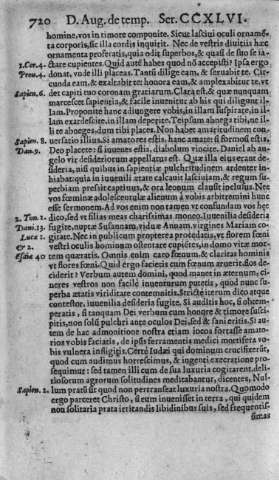 720 D. Aug. de temp. Ser. CCXLVI.
homine, vos in timore componite. Sicut lasciui oculi ornamẽ-
ta corporis, sic illa cordis inquirit. Nec de vestris diuitijs hæc
ornamenta proferatis, quia odijs superbos, &
1. Cor. 4. ctare cupientes. Quid aut habes quod nõ accepisti? Ipsa ergo
Prou. 4. donat, vo de illi placeas. Tantũ dilige eam, & seruabit te. Cir-
cunda eam, & exaltabit te: honora eam, & amplexabitur te, vt
Sapien. 6. det capiti tuo coronam gratiarum. Clara est, & quæ nunquam
marcescet sapientia, & facile inuenitur ab his qui diligunt il-
lam. Propterea hanc
lam exardescite, in illam deperite. Te ipsum ahorga tibi, ne il-
li te aboeges, dum tibi places. Non habet amaritudinem con-
Sapien. 8. uersatio illius. Si amatores estis, hanc amate: si formosi estis,
Dan. 9. Deo placete: si iuuenes estis, diabolum vincite. Daniel ab an-
gelo vir desideriorum appellatus est. Quæ illa eius erant de-
sideria, nisi quibus in sapientiæ pulchritudinem ardenter in-
hiabat, quia in iuuenili ætate calcauit lasciuiam, & regum su-
perbiam pressit captiuus, & ora leonum clausit inclusus. Nec
vos fœminæ adolescentulæ alienum à vobis arbitremini hunc
esse sermonem. Ad vos enim non tantum vt consulam vos hęc
2. Tim. 2. dico, sed vt filias meas charissimas moneo. Iuuenilia desideria
Dani. 13. fugite, nuptæ Susannam, viduæ Annam, virgines Mariam co-
Luca 1. gitate. Nec in publicum propterea procedatis, vt florem fœni
& 2. vestri oculis hominum ostentare cupiatis, in domo vitæ mor-
Esaiæ 40 tem quæratis. Omnis enim caro fœnum, & claritas hominis
vt flores fœni. Quid ergo faciestis cum fœnum aruerit & flos de-
ciderit? Verbum autem domini, quod manet in æternum, ci-
neres vestros non facilè inuenturum putetis, quod nunc su-
perba ætatis viriditate contemnitis. Strictè iterum dico atque
conteste, iuuenilia desideria fugite. Si auditis hoc, si obtem-
peratis, si tanquam Dei verbum cum honore & timore susci-
pitis, non solũ pulchri antè oculos Dei, sed & sani eritis. Si au-
tem de hac admonitione nostra etiam iocos fortassis amatio
vobis faciatis, de ipsis ferramentis medici mortifera vo-
bis vulnera infligitis. Certè Iudæi qui dominum crucifixerũt,
quod cum audimus horrescimus, & ingenti execratione pro-
sequimur: sed tamen illi cum de sua luxuria cogitarent, deli-
tiosorum agrorum solitudines meditabantur, dicentes, Nul-
Sapien. 2. lum pratũ sit quod non pertranseat luxuria nostra. Quomodo
ergo parceret Christo, si eum inuenisset in terra, qui quidem
non solitaria prata irritandis libidinibus suis, sed frequentis-
simas